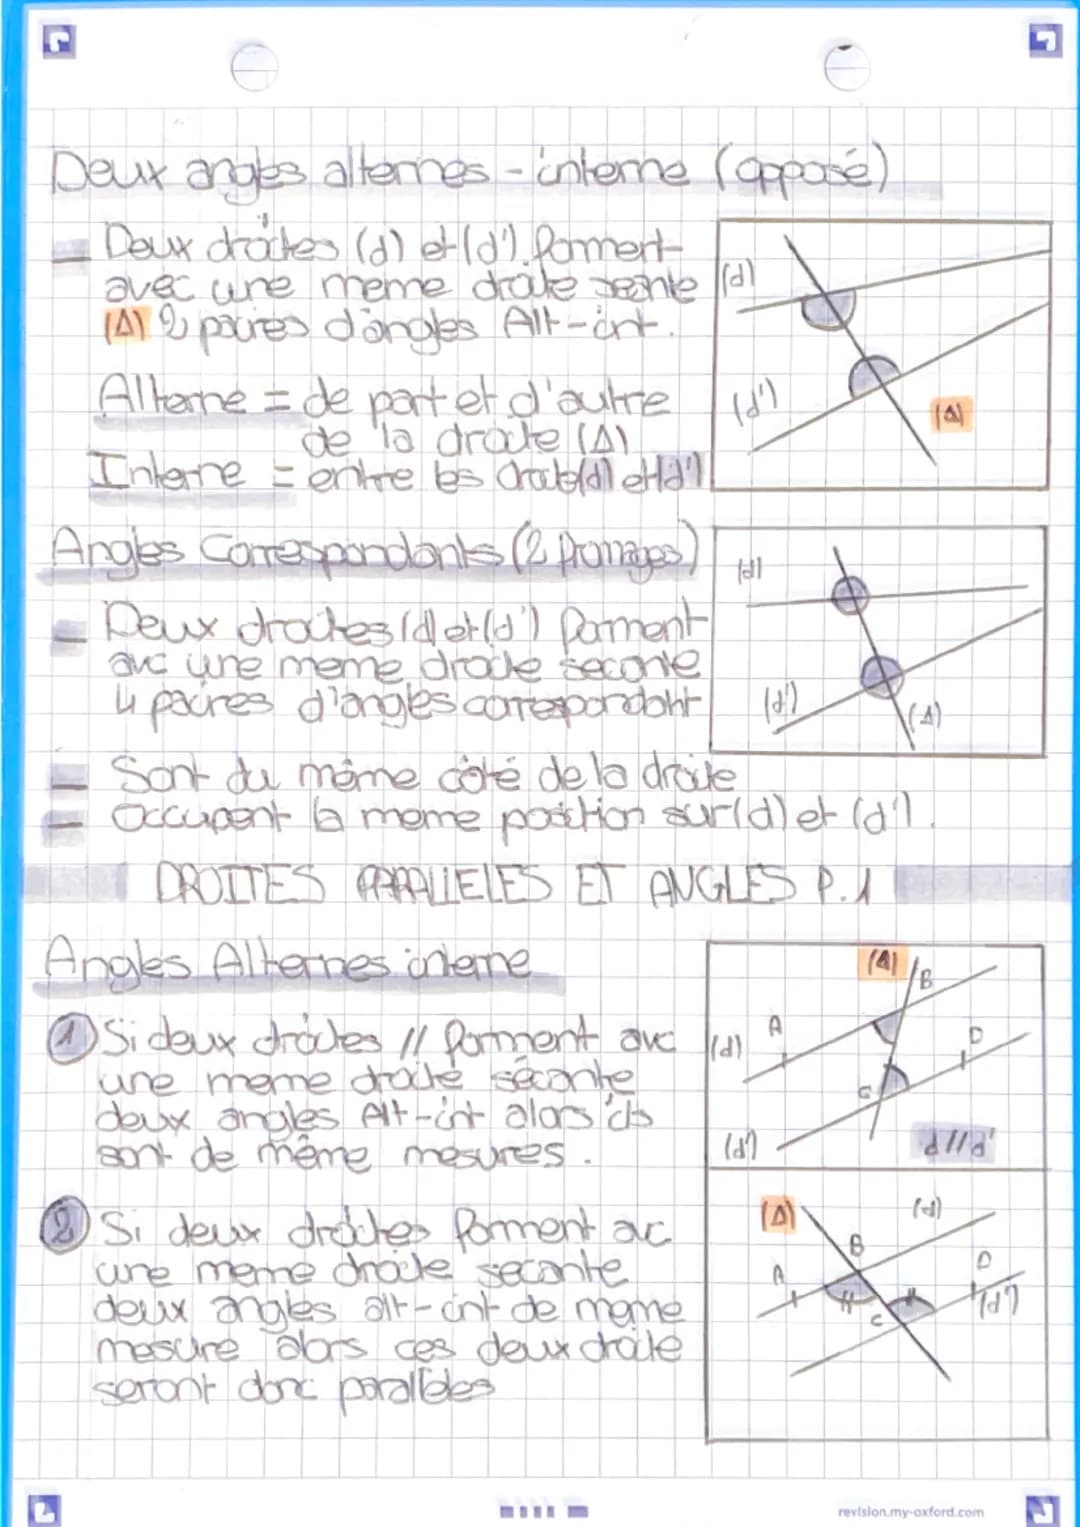 Deux angles alternes - interne (opposé)
Deux droites (d) et (d') forment
avec une meme droite seante
(Δ) 2 paires d'angles Alt-int.
(d)
(d')
(Δ)
Alterne = de part et d'autre
de la droite (Δ)
Interne = entre les droite(d) et(d')
Angles Correspondants (2 fromages)
(d)
(d')
(Δ)
Deux droites (d) et (d') forment
avc une meme droite secante
4 paires d'angles correspondant
Sont du même côté de la droite
Occupent la meme position sur(d) et (d').
DROITES PARALLELES ET ANGLES P.1
Angles Alternes interne
(Δ)
B
A
D
(d)
C
(d')
d//d'
1 Si deux droites // forment avc
une meme droite sécante
deux angles Alt-int alors ils
sont de même mesures.
(Δ)
(d)
B
A
D
(d')
C
2 Si deux droites forment avc
une meme droite secante
deux angles alt-int de meme
mesure alors ces deux droite
seront donc parallèles
revision.my-oxford.com